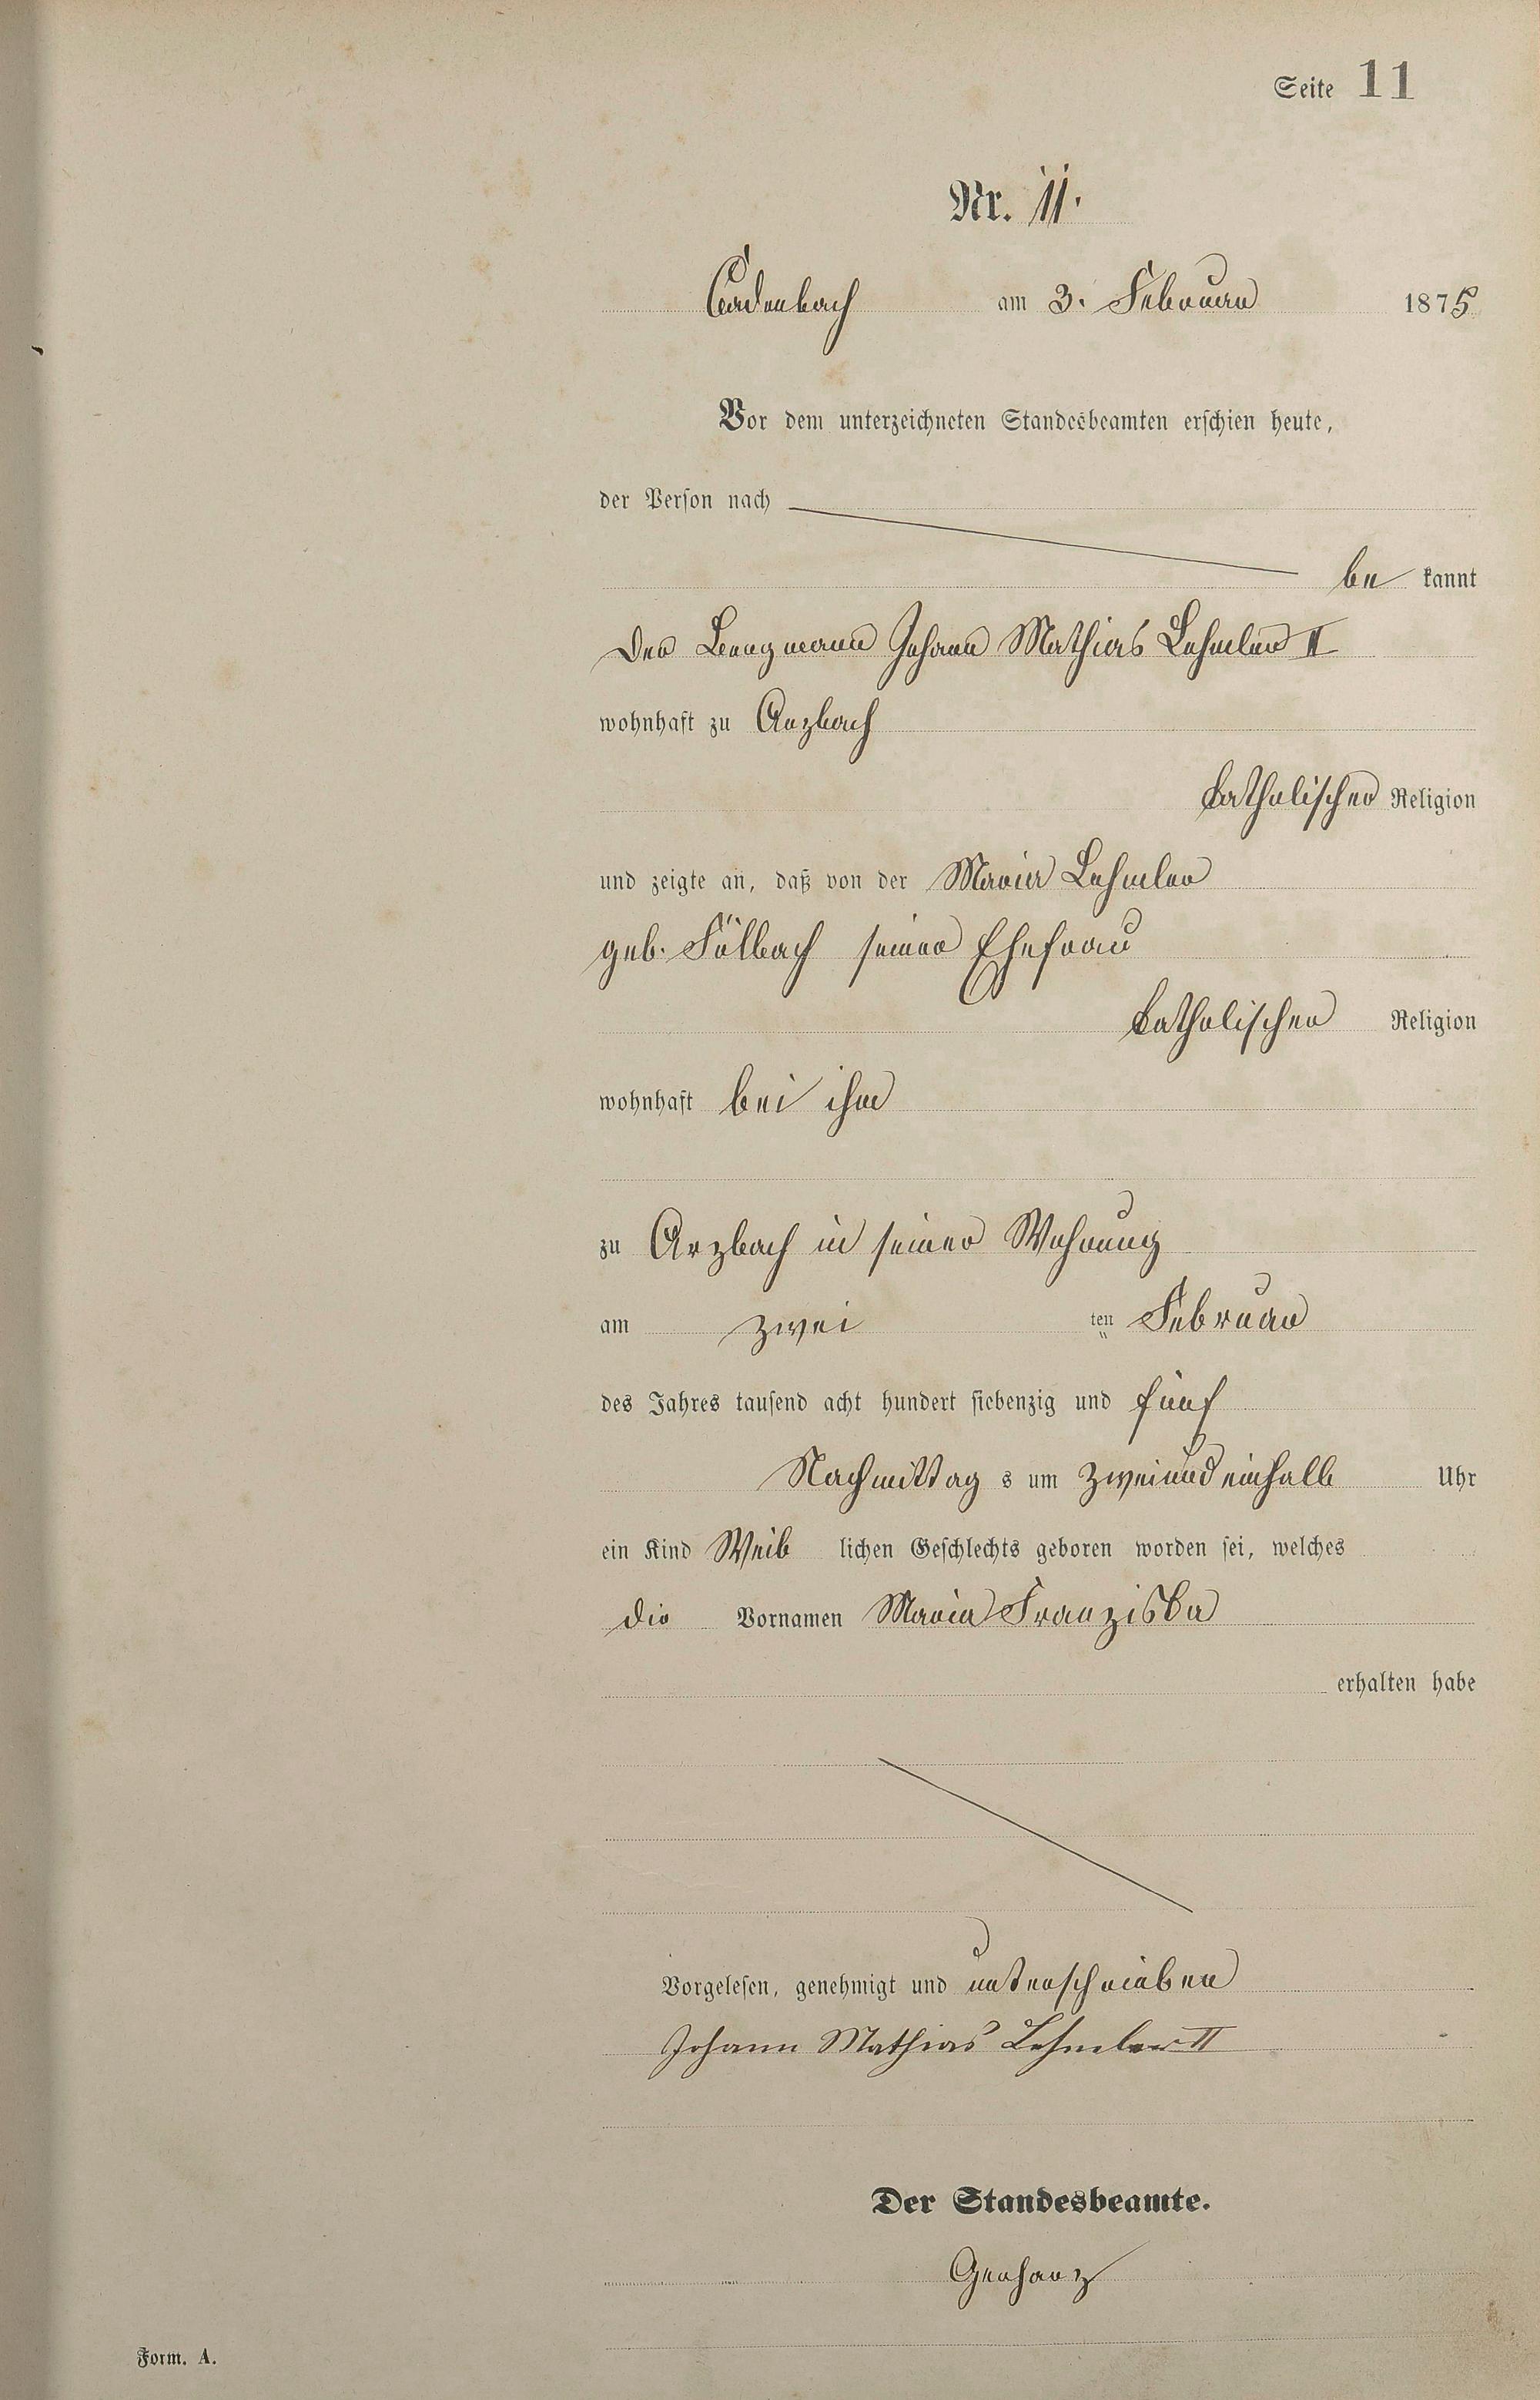 Seite 11
Nr. 11.
Cadenbach am 3. Februar 1875
Vor dem unterzeichneten Standesbeamten erschien heute,
der Person nach
be kannt
der Bergmann Johann Mathias Lehmler II
wohnhaft zu Arzbach
katholischer Religion
und zeigte an, daß von der Maria Lehmler
geb. Fölbach seiner Ehefrau
katholischer Religion
wohnhaft bei ihm
zu Arzbach in seiner Wohnung
am zwei ten Februar
des Jahres tausend acht hundert siebenzig und fünf
Nachmittag s um zweiundeinhalb Uhr
ein Kind Weib lichen Geschlechts geboren worden sei, welches
die Vornamen Maria Franziska
erhalten habe
Vorgelesen, genehmigt und unterschrieben
Johann Mathias Lehmler II
Der Standesbeamte.
Gerharz
Form. A.